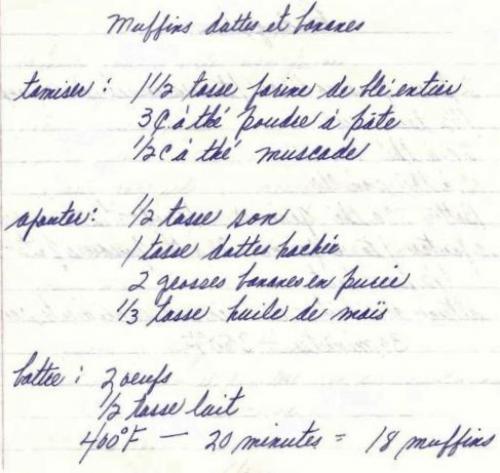 Muffins dattes et bananes
tamiser : 1 1/2 tasse farine de blé entier
3 c à thé poudre à pâte
1/2 c à thé muscade
ajouter : 1/2 tasse son
1 tasse dattes hachée
2 grosses bananes en purée
1/3 tasse huile de maïs
battre : 2 oeufs
1/2 tasse lait
400°F — 20 minutes = 18 muffins